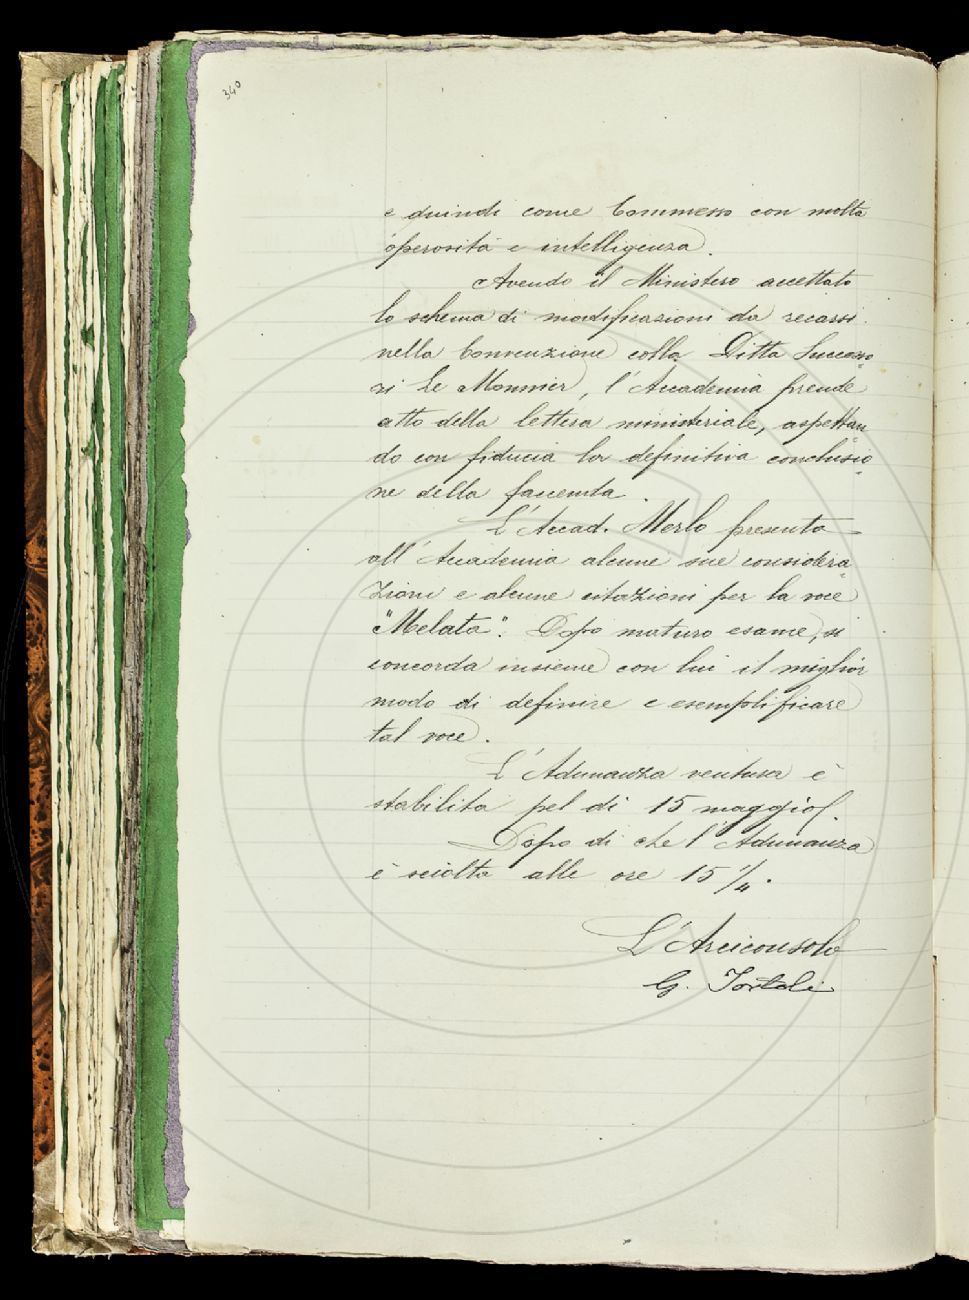 340
e quindi come Commesso con molta
operosità e intelligenza.
Avendo il Ministero accettato
lo schema di modificazioni da recarsi
nella Convenzione colla Ditta Succeso
ri Le Monnier, l'Accademia prende
atto della lettera ministeriale, aspettan
do con fiducia la definitiva conclusio
ne della faccenda.
L'Accad. Merlo presenta
all'Accademia alcune sue considera
zioni e alcune citazioni per la voce
"Melata". Dopo maturo esame, si
concorda insieme con lui il miglior
modo di definire e esemplificare
tal voce.
L'Adunanza ventura è
stabilita pel dì 15 maggio.
Dopo di che l'Adunanza
è sciolta alle ore 15 1/4.
L'Arciconsolo
G. Tortoli